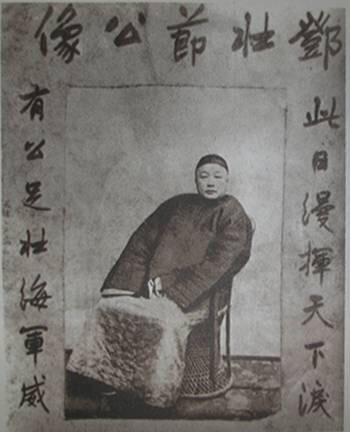 鄧壯節公像
此日漫揮天下淚
有公足壯海軍威